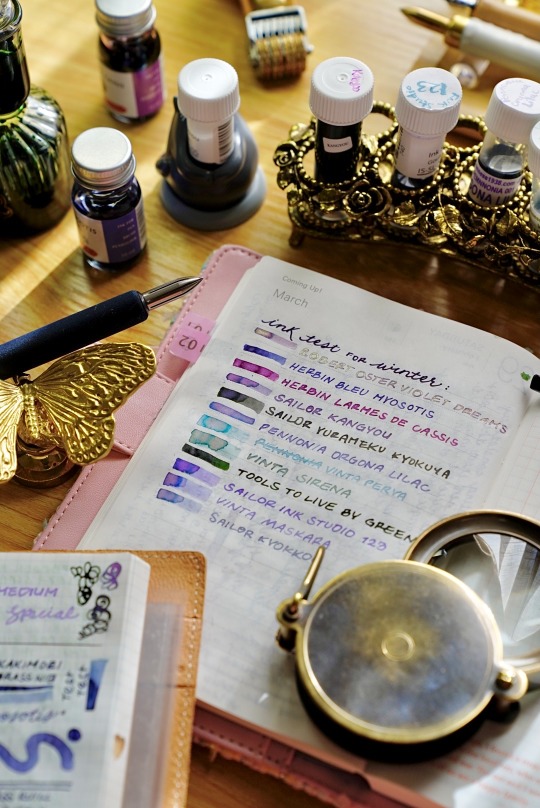 Coming Up!
March
ink test for winter:
ROBERT OSTER VIOLET DREAMS
HERBIN BLEU MYOSOTIS
HERBIN LARMES DE CASSIS
SAILOR KANGYOU
SAILOR YURAMEKU KYOKUYA
PENNONIA ORGONA LILAC
PENNONIA VINTA PERYA
VINTA SIRENA
TOOLS TO LIVE BY GREEN
SAILOR INK STUDIO 123
VINTA MASKARA
SAILOR KYOKKO
02
MEDIUM
Special
KAKIMORI
BRASS NIB
TEST
123
Ink